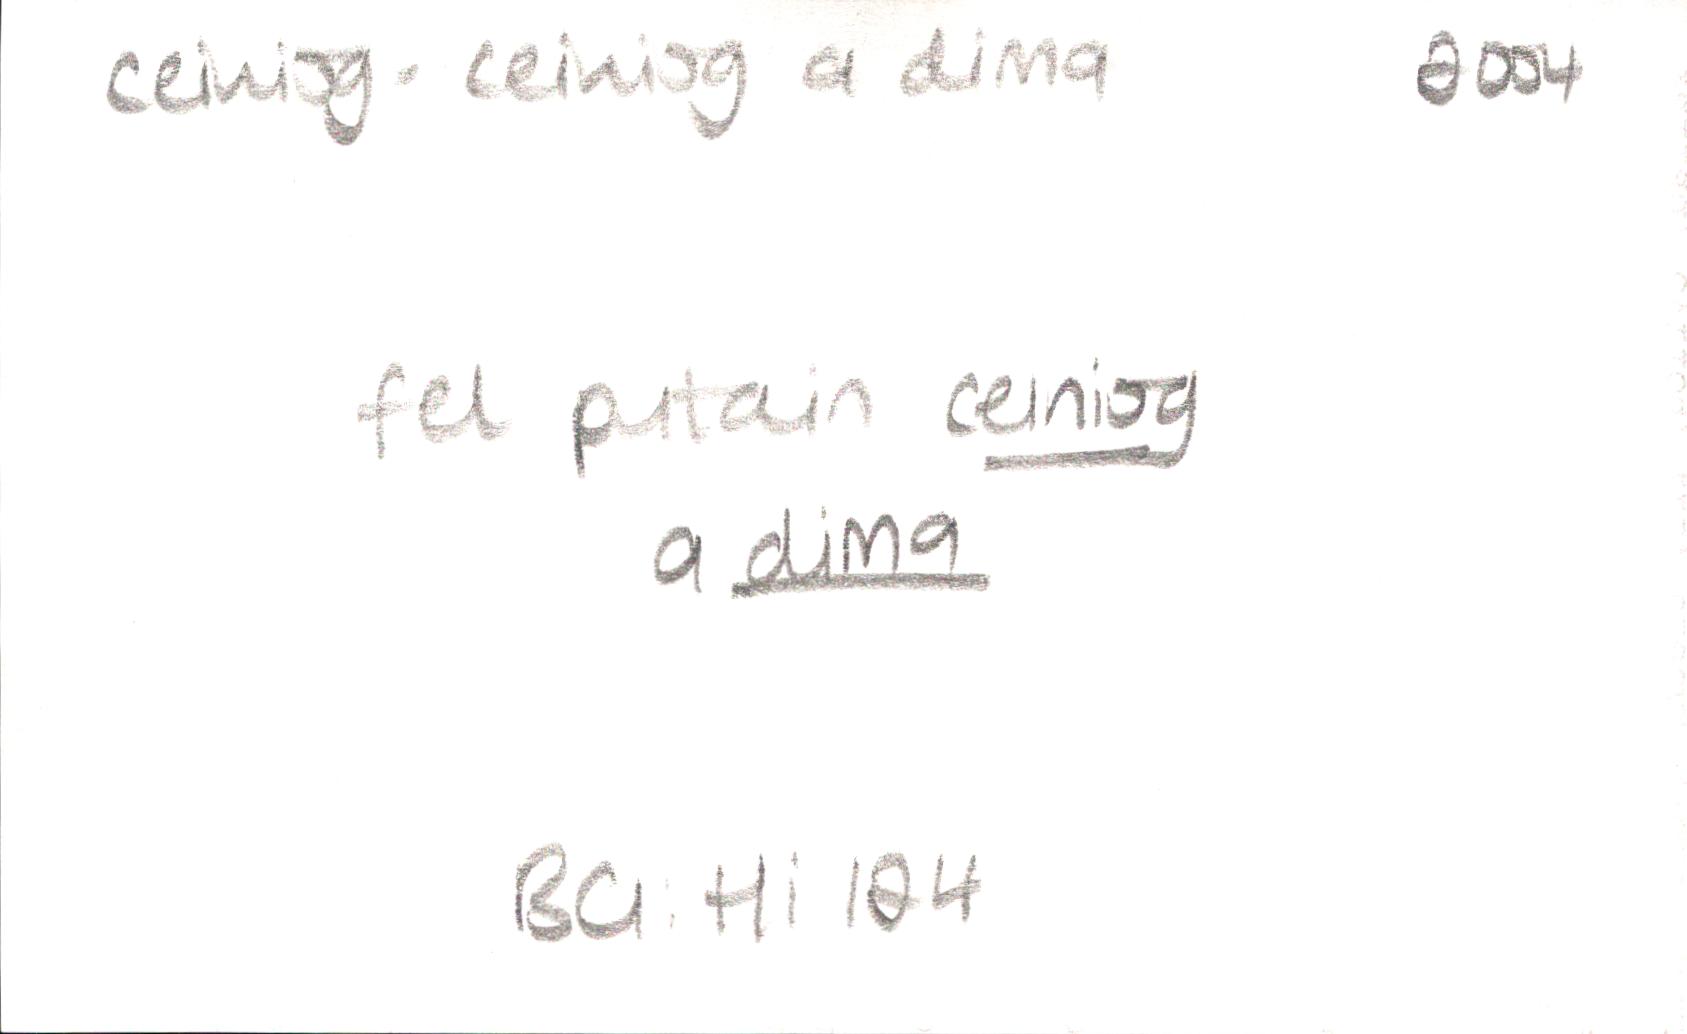 ceiniog · ceiniog a dima 2004
fel putain ceiniog
a dima
BCI: Hi 124